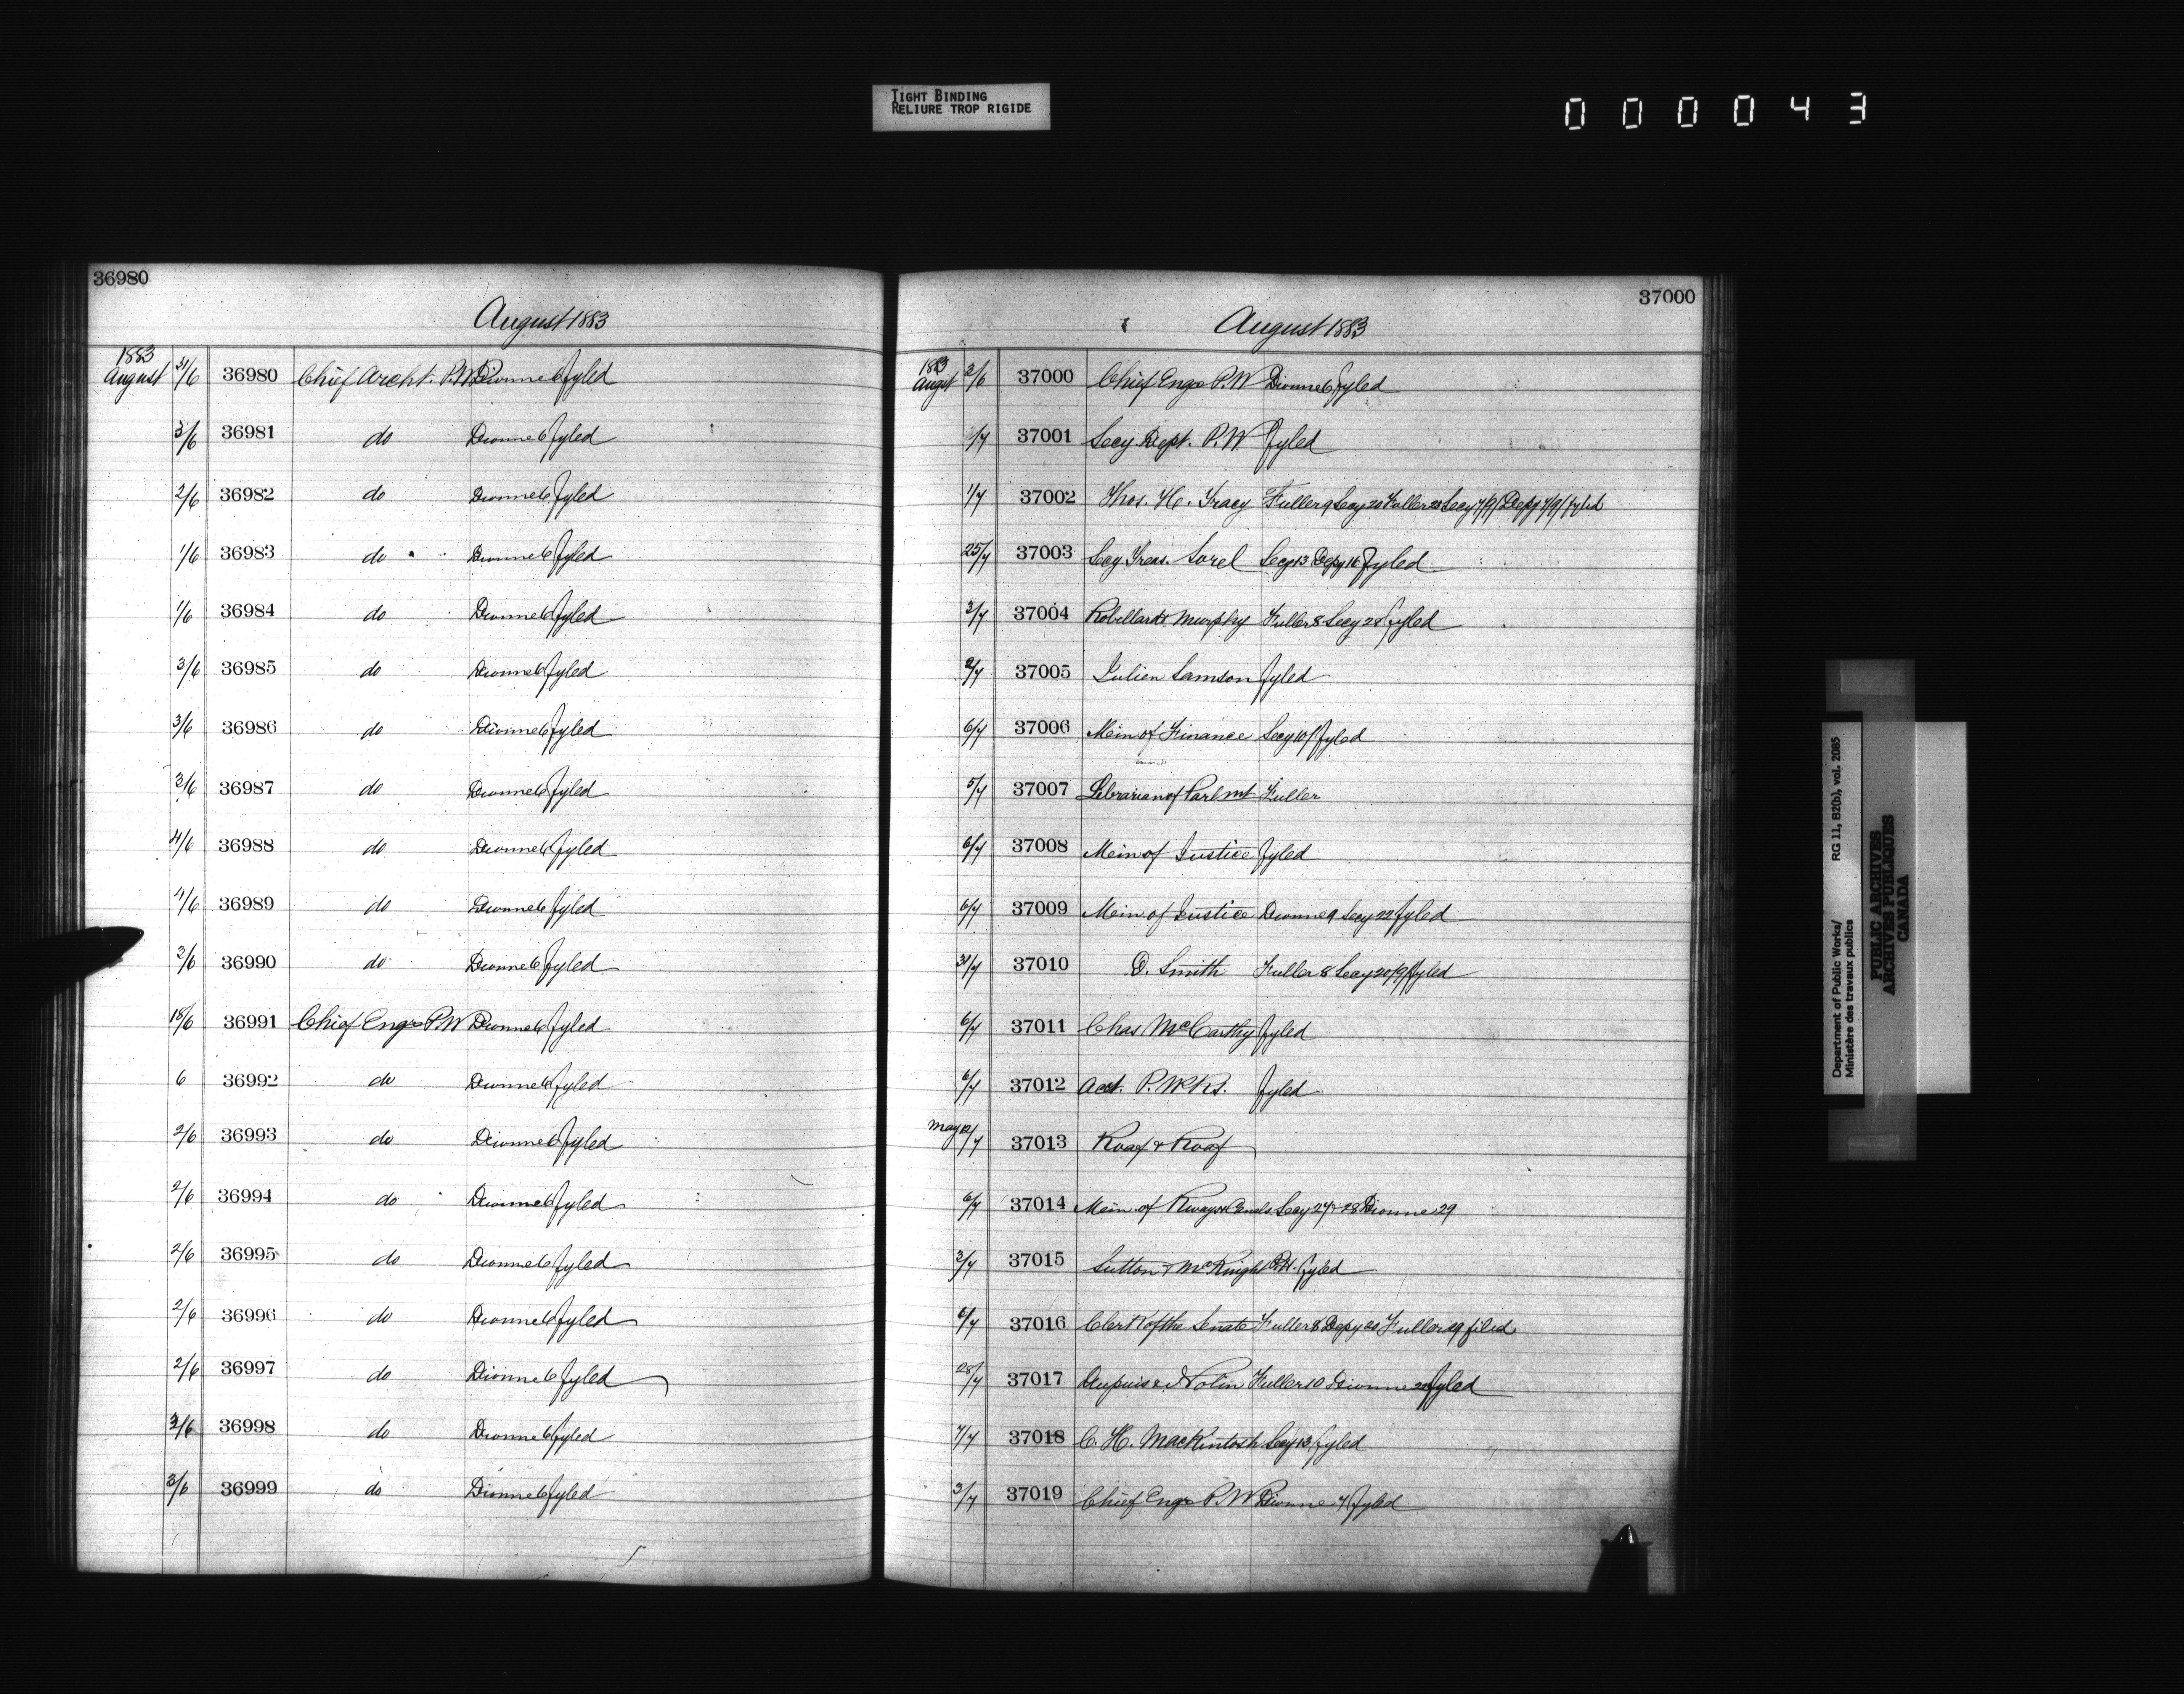 TIGHT BINDING
RELIURE TROP RIGIDE
000043
36980
August 1883
1883
August 31/6 36980 Chief Archt. P.W. Dionne 6 fyled
3/6 36981 do Dionne 6 fyled
2/6 36982 do Dionne 6 fyled
1/6 36983 do Dionne 6 fyled
1/6 36984 do Dionne 6 fyled
3/6 36985 do Dionne 6 fyled
3/6 36986 do Dionne 6 fyled
3/6 36987 do Dionne 6 fyled
4/6 36988 do Dionne 6 fyled
4/6 36989 do Dionne 6 fyled
3/6 36990 do Dionne 6 fyled
18/6 36991 Chief Engr P.W Dionne 6 fyled
6 36992 do Dionne 6 fyled
2/6 36993 do Dionne 6 fyled
2/6 36994 do Dionne 6 fyled
2/6 36995 do Dionne 6 fyled
2/6 36996 do Dionne 6 fyled
2/6 36997 do Dionne 6 fyled
3/6 36998 do Dionne 6 fyled
3/6 36999 do Dionne 6 fyled
37000
August 1883
1883
August 2/6 37000 Chief Engr P.W Dionne 6 fyled
1/7 37001 Secy Dept. P.W fyled
1/7 37002 Thos. H. Tracy Fuller 9 Secy 20 Fuller 28 Secy 4/9/ Depy 7/9/ fyled
25/7 37003 Secy Treas. Sorel Secy 13 Depy 16 fyled
3/7 37004 Robillard & Murphy Fuller 8 Secy 28 fyled
2/7 37005 Julien Samson fyled
6/7 37006 Mem of Finance Secy 10/ fyled
5/7 37007 Librarian of Parlmt Fuller
6/7 37008 Mem of Justice fyled
6/7 37009 Mem of Justice Dionne 9 Secy 22 fyled
31/7 37010 D. Smith Fuller 8 Secy 20/9/ fyled
6/7 37011 Chas McCarthy fyled
6/7 37012 Acct. P. Wks. fyled
May 12/7 37013 Roaf & Roaf
6/7 37014 Mem of Rways & Canals Secy 27 & 28 Dionne 29
3/7 37015 Sutton & McKnight fyled
6/7 37016 Clerk of the Senate Fuller 8 Depy 20 Fuller 29 filed
28/7 37017 Dupuis & Nolin Fuller 10 Dionne fyled
7/7 37018 C. H. Mackintosh Secy 13 fyled
3/7 37019 Chief Engr P.W Dionne 7 fyled
Department of Public Works/ RG 11, B2(b), vol. 2085
Ministère des travaux publics
PUBLIC ARCHIVES
ARCHIVES PUBLIQUES
CANADA